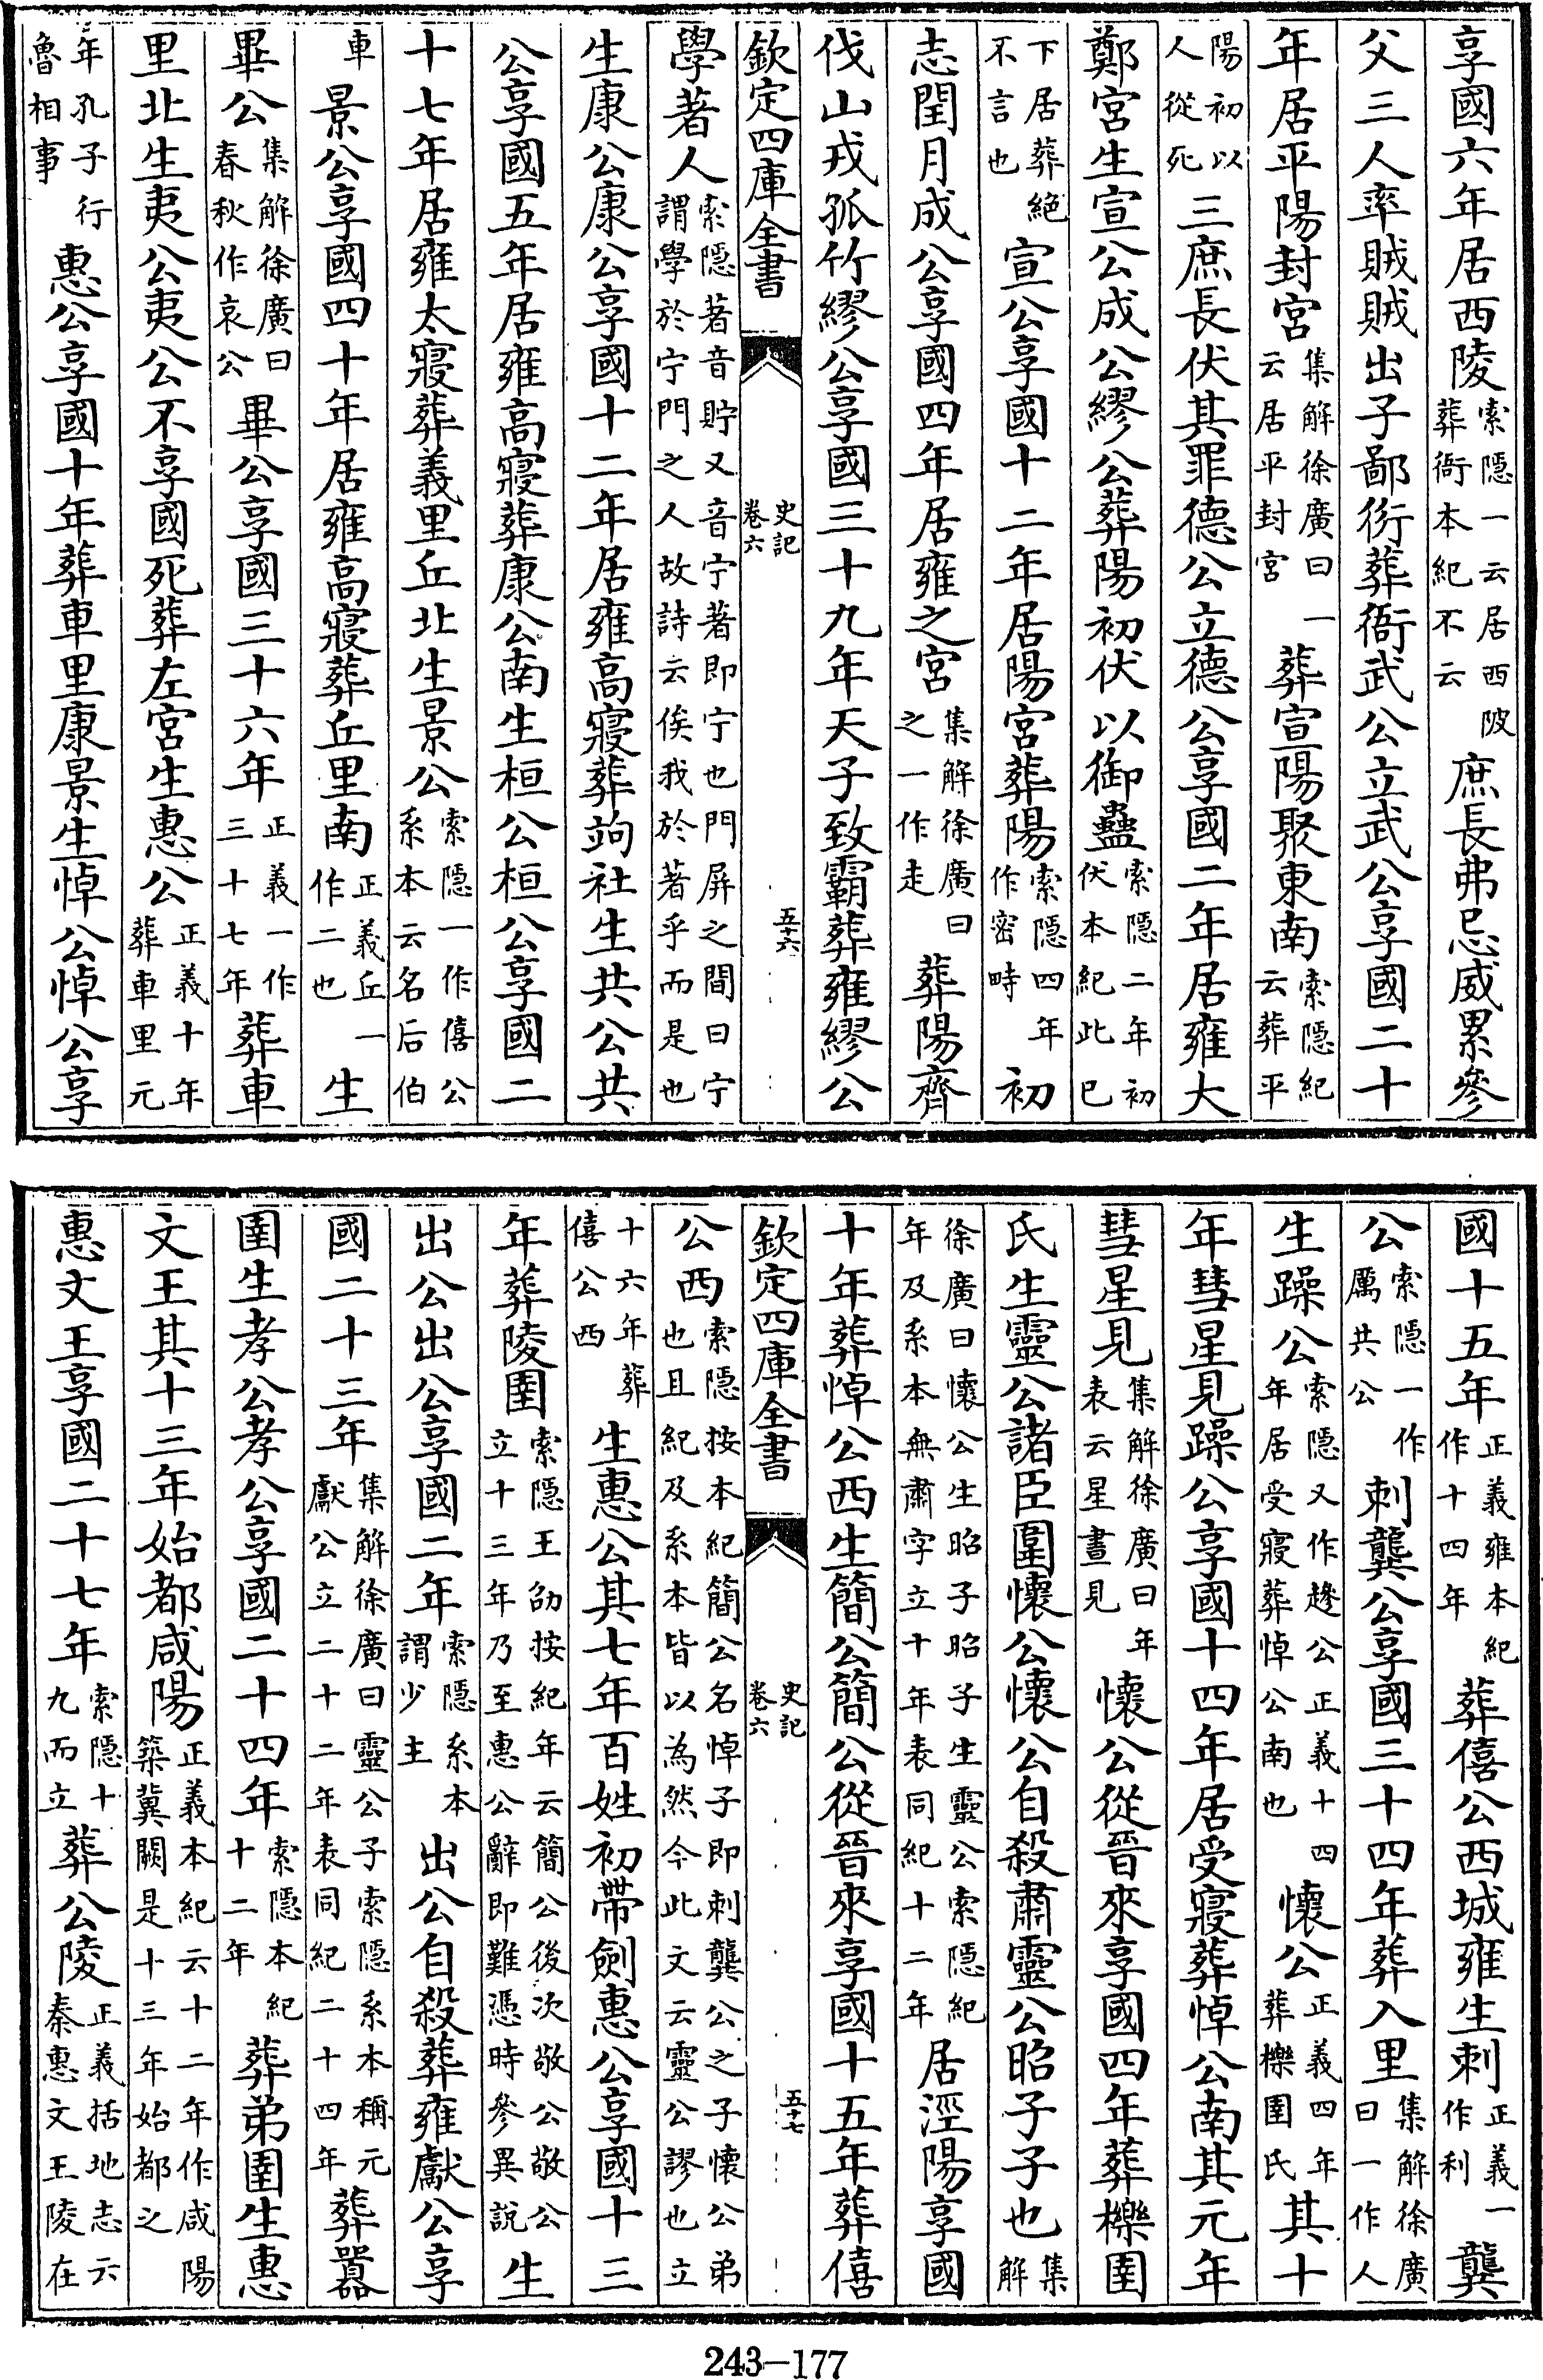 享國六年居西陵索隱一云居西陂葬衙本紀不云庶長弗忌威累參
父三人率賊賊出子鄙衍葬衙武公立武公享國二十
年居平陽封宮集解徐廣曰一云居平封宮葬宣陽聚東南索隱紀云葬平
陽初以人從死三庶長伏其罪德公立德公享國二年居雍大
鄭宮生宣公成公繆公葬陽初伏以御蠱索隱二年初伏本紀此已
下居葬絕不言也宣公享國十二年居陽宮葬陽索隱四年作密畤初
志閏月成公享國四年居雍之宮集解徐廣曰之一作走葬陽齊
伐山戎孤竹繆公享國三十九年天子致霸葬雍繆公
欽定四庫全書 史記卷六 五十六
學著人索隱著音貯又音宁著即宁也門屏之間曰宁謂學於宁門之人故詩云俟我於著乎而是也
生康公康公享國十二年居雍高寢葬竘社生共公共
公享國五年居雍高寢葬康公南生桓公桓公享國二
十七年居雍太寢葬義里丘北生景公索隱一作僖公系本云名后伯
車景公享國四十年居雍高寢葬丘里南正義丘一作二也生
畢公集解徐廣曰春秋作哀公畢公享國三十六年正義一作三十七年葬車
里北生夷公夷公不享國死葬左宮生惠公正義十年葬車里元
年孔子行魯相事惠公享國十年葬車里康景生悼公悼公享
國十五年正義雍本紀作十四年葬僖公西城雍生刺正義一作利龔
公索隱一作厲共公刺龔公享國三十四年葬入里集解徐廣曰一作人
生躁公索隱又作趮公正義十四年居受寢葬悼公南也懷公正義四年葬櫟圉氏其十
年彗星見躁公享國十四年居受寢葬悼公南其元年
彗星見集解徐廣曰年表云星晝見懷公從晉來享國四年葬櫟圉
氏生靈公諸臣圍懷公懷公自殺肅靈公昭子子也集解
徐廣曰懷公生昭子昭子生靈公索隱紀年及系本無肅字立十年表同紀十二年居涇陽享國
十年葬悼公西生簡公簡公從晉來享國十五年葬僖
欽定四庫全書 史記卷六 五十七
公西索隱按本紀簡公名悼子即刺龔公之子懷公弟也且紀及系本皆以為然今此文云靈公謬也立
十六年葬僖公西生惠公其七年百姓初帶劍惠公享國十三
年葬陵圉索隱王劭按紀年云簡公後次敬公敬公立十三年乃至惠公辭即難憑時參異說生
出公出公享國二年索隱系本謂少主出公自殺葬雍獻公享
國二十三年集解徐廣曰靈公子索隱系本稱元獻公立二十二年表同紀二十四年葬囂
圉生孝公孝公享國二十四年索隱本紀十二年葬弟圉生惠
文王其十三年始都咸陽正義本紀云十二年作咸陽築冀闕是十三年始都之
惠文王享國二十七年索隱十九而立葬公陵正義括地志云秦惠文王陵在
243—177